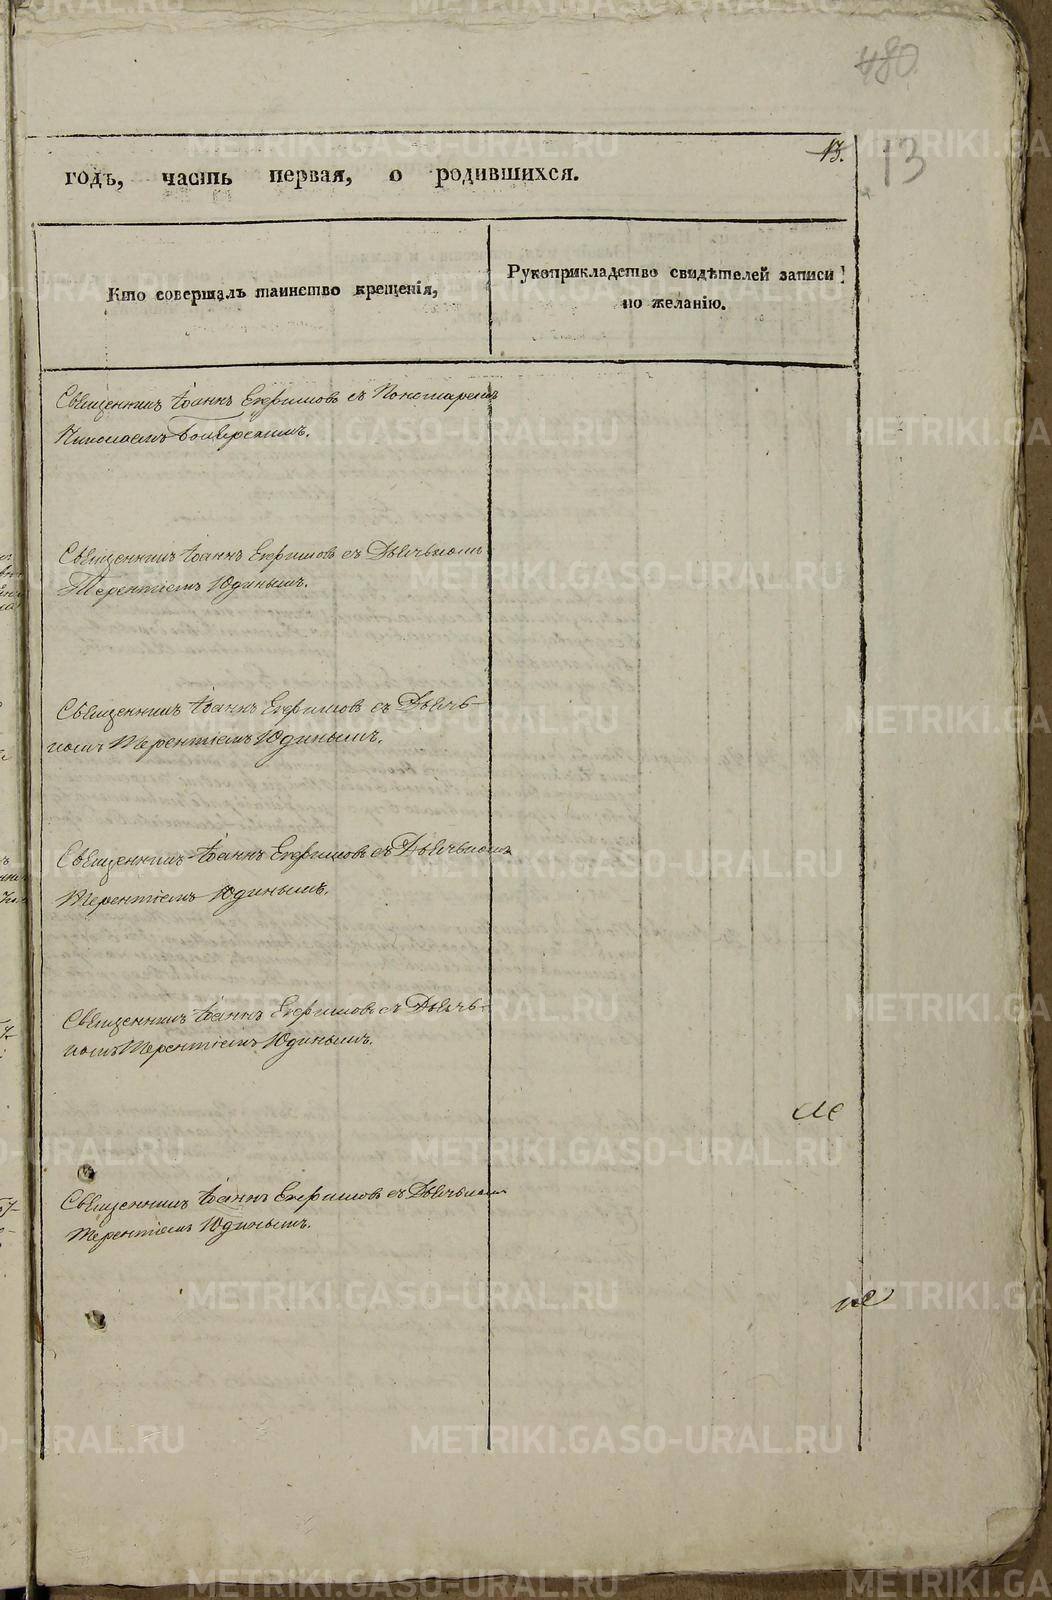 480
13.
13
годъ, часть первая, о родившихся.
Кто совершалъ таинство крещенія,
Рукоприкладство свидѣтелей записи
по желанію.
Священникъ Іоаннъ Ефимовъ съ Пономаремъ
Николаемъ
Священникъ Іоаннъ Ефимовъ съ Дьячькомъ
Терентіемъ Юдинымъ.
Священникъ Іоаннъ Ефимовъ съ Дьячь-
комъ Терентіемъ Юдинымъ.
Священникъ Іоаннъ Ефимовъ съ Дьячькомъ
Терентіемъ Юдинымъ.
Священникъ Іоаннъ Ефимовъ съ Дьячь-
комъ Терентіемъ Юдинымъ.
Священникъ Іоаннъ Ефимовъ съ Дьячькомъ
Терентіемъ Юдинымъ.
METRIKI.GASO-URAL.RU